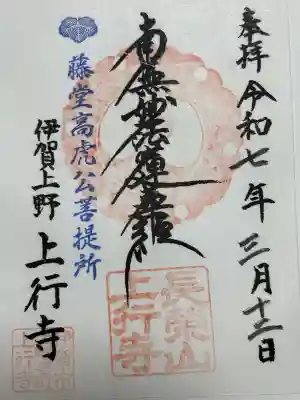 奉拝 令和七年三月十三日
南無妙法蓮華経
長栄山
上行寺
藤堂高虎公菩提所
伊賀上野 上行寺